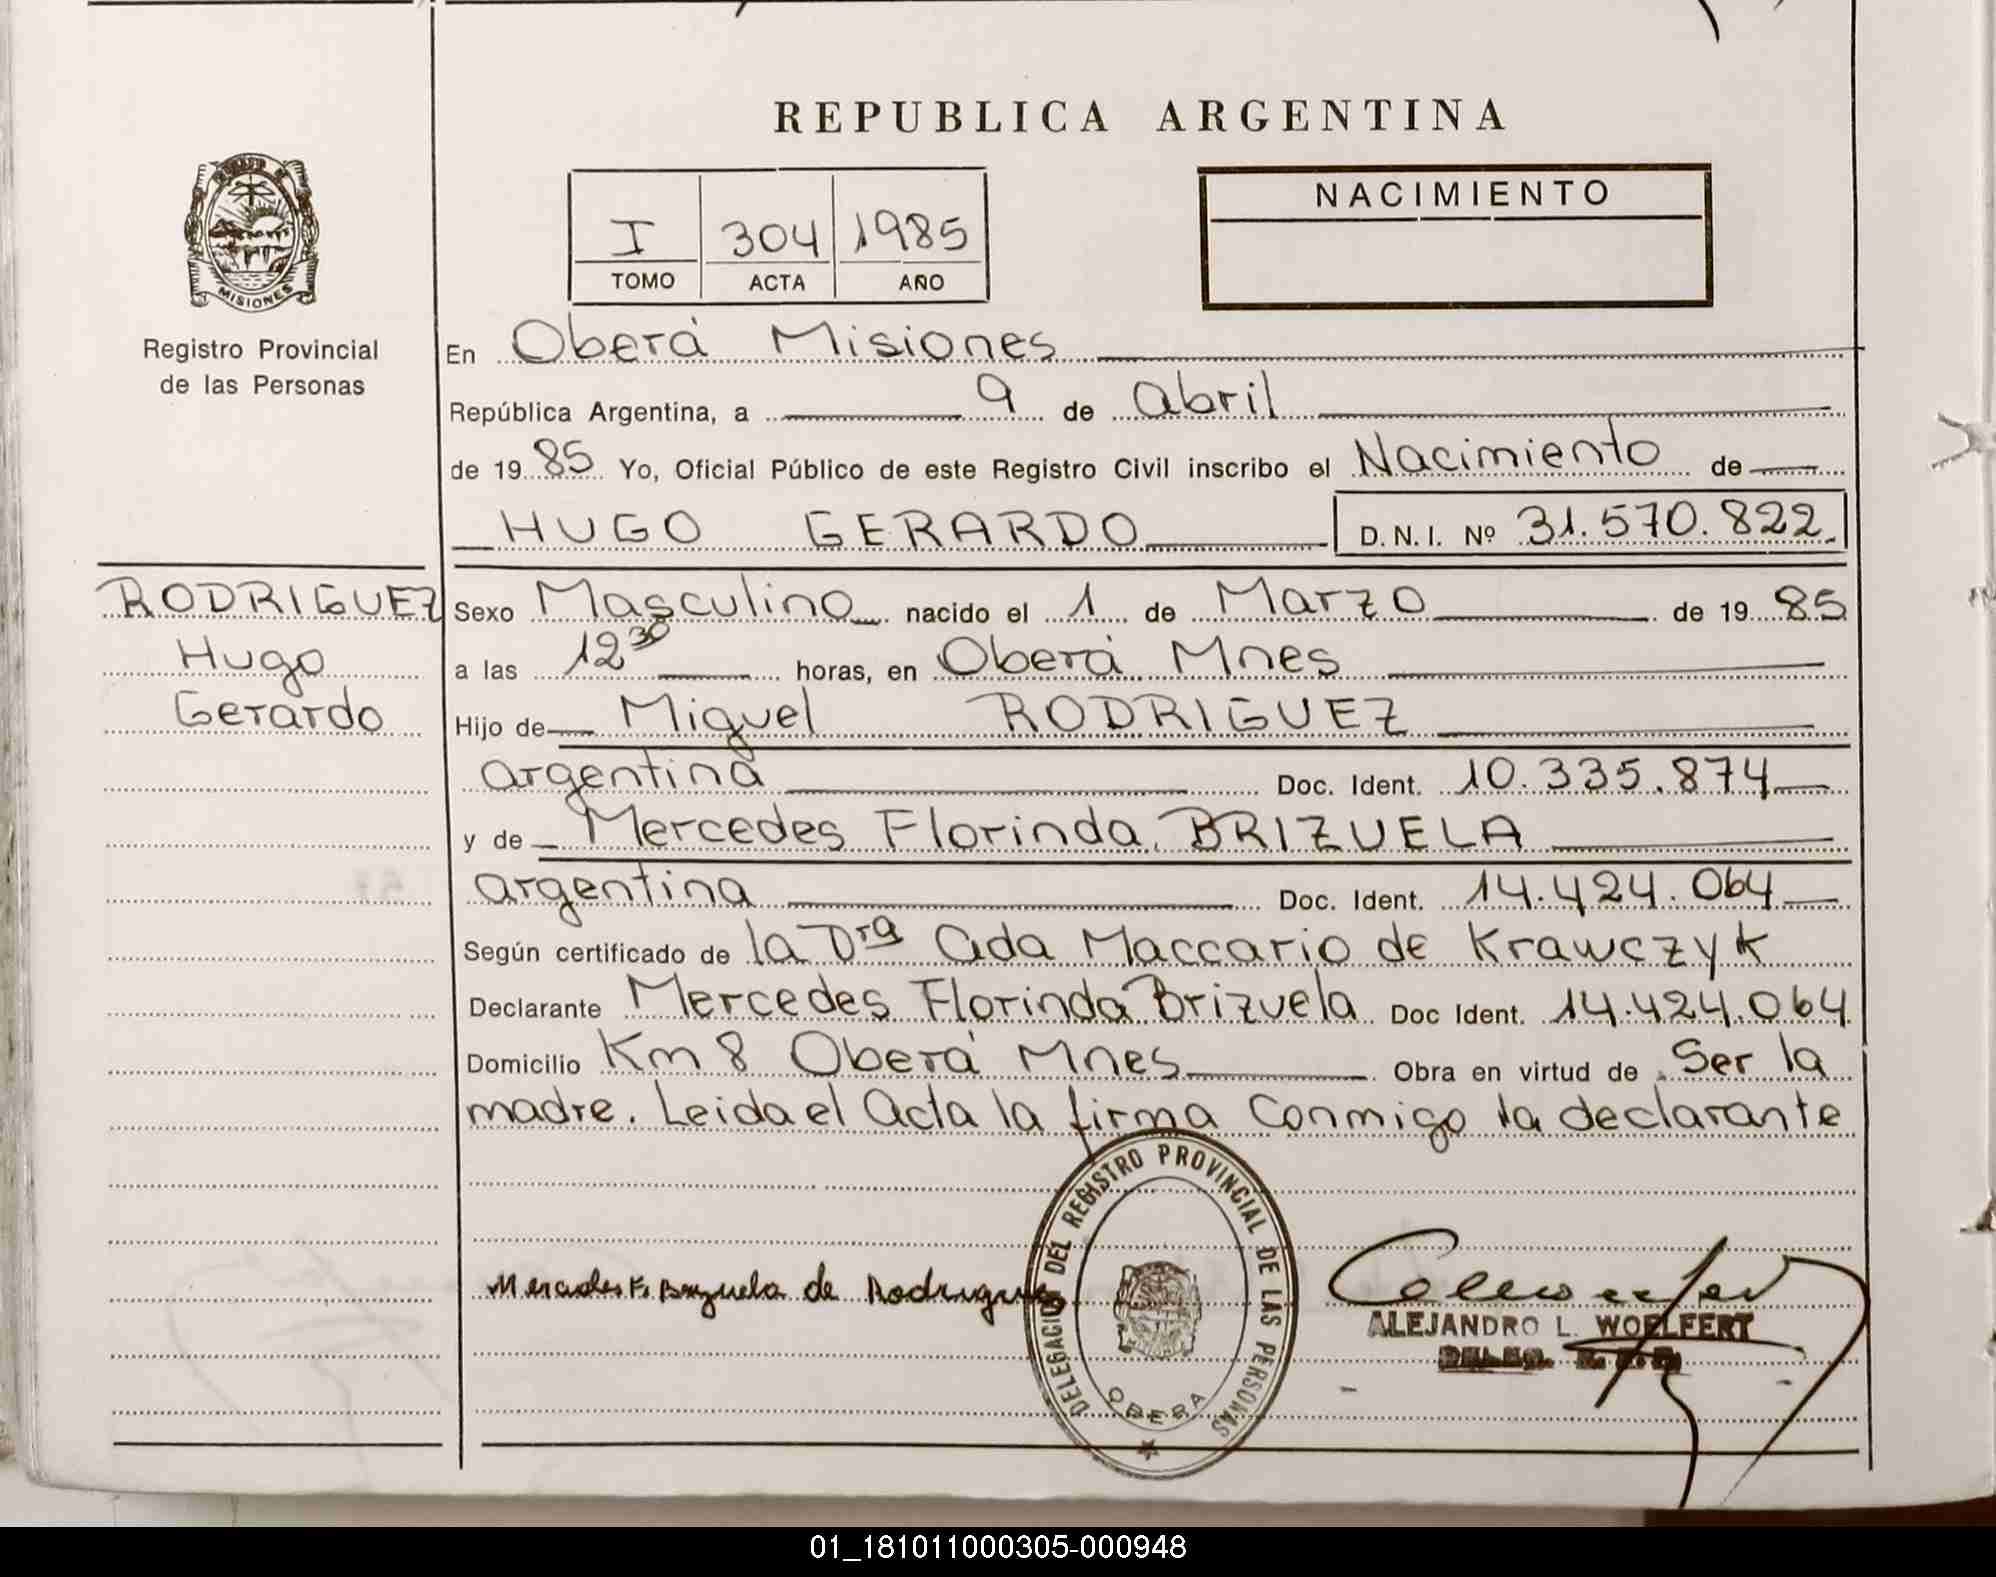 REPUBLICA ARGENTINA
NACIMIENTO
I 304 1985
TOMO ACTA AÑO
MISIONES
Registro Provincial
de las Personas
En Oberá Misiones
República Argentina, a 9 de Abril
de 19 85 Yo, Oficial Público de este Registro Civil inscribo el Nacimiento de
HUGO GERARDO D.N.I. Nº 31.570.822
RODRIGUEZ
Hugo
Gerardo
Sexo Masculino nacido el 1 de Marzo de 19 85
a las 12 30 horas, en Oberá Mnes
Hijo de Miguel RODRIGUEZ
argentina Doc. Ident. 10.335.874
y de Mercedes Florinda BRIZUELA
argentina Doc. Ident. 14.424.064
Según certificado de la Dra Ada Maccario de Krawczyk
Declarante Mercedes Florinda Brizuela Doc Ident. 14.424.064
Domicilio Km 8 Oberá Mnes Obra en virtud de Ser la
madre. Leida el Acta la firma Conmigo la declarante
DELEGACION DEL REGISTRO PROVINCIAL DE LAS PERSONAS
OBERA
Mercedes F. Brizuela de Rodriguez
ALEJANDRO L. WOELFERT
01_181011000305-000948